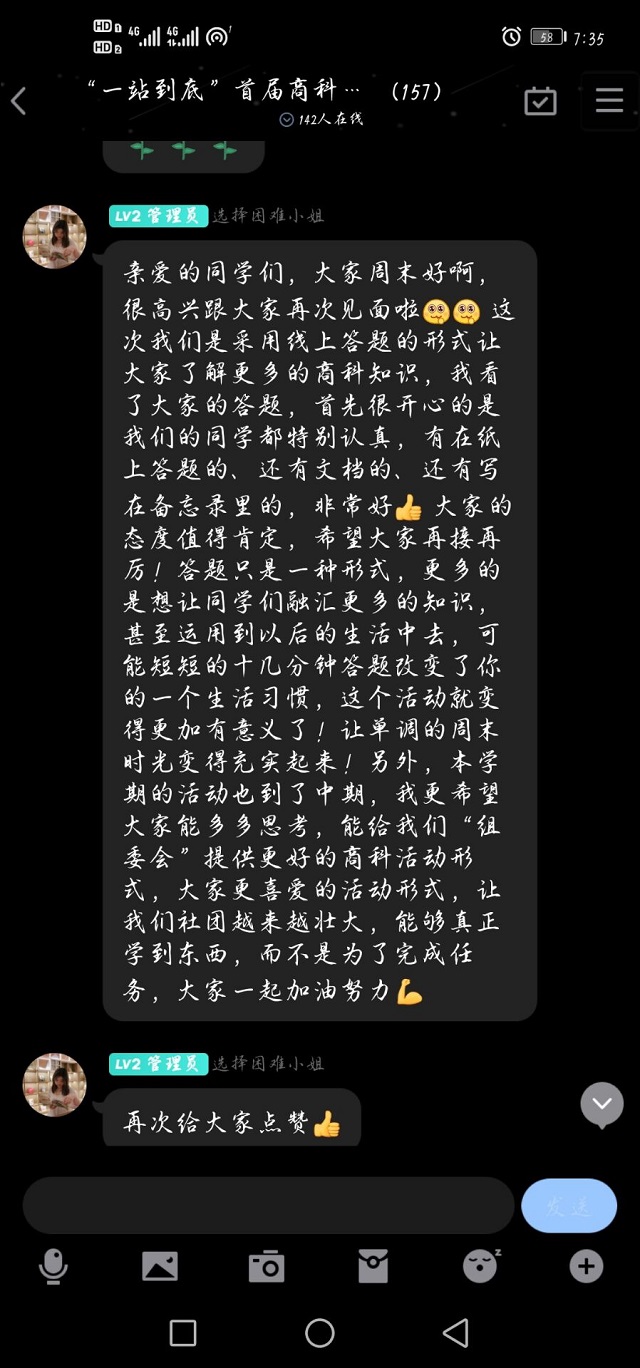 HD 1 4G 4G 58 7:35
HD 2
“一站到底”首届商科… (157)
142人在线
LV2 管理员 选择困难小姐
亲爱的同学们，大家周末好啊，
很高兴跟大家再次见面啦 这
次我们是采用线上答题的形式让
大家了解更多的商科知识，我看
了大家的答题，首先很开心的是
我们的同学都特别认真，有在纸
上答题的、还有文档的、还有写
在备忘录里的，非常好👍 大家的
态度值得肯定，希望大家再接再
厉！答题只是一种形式，更多的
是想让同学们融汇更多的知识，
甚至运用到以后的生活中去，可
能短短的十几分钟答题改变了你
的一个生活习惯，这个活动就变
得更加有意义了！让单调的周末
时光变得充实起来！另外，本学
期的活动也到了中期，我更希望
大家能多多思考，能给我们“组
委会”提供更好的商科活动形
式，大家更喜爱的活动形式，让
我们社团越来越壮大，能够真正
学到东西，而不是为了完成任
务，大家一起加油努力💪
LV2 管理员 选择困难小姐
再次给大家点赞👍
发送